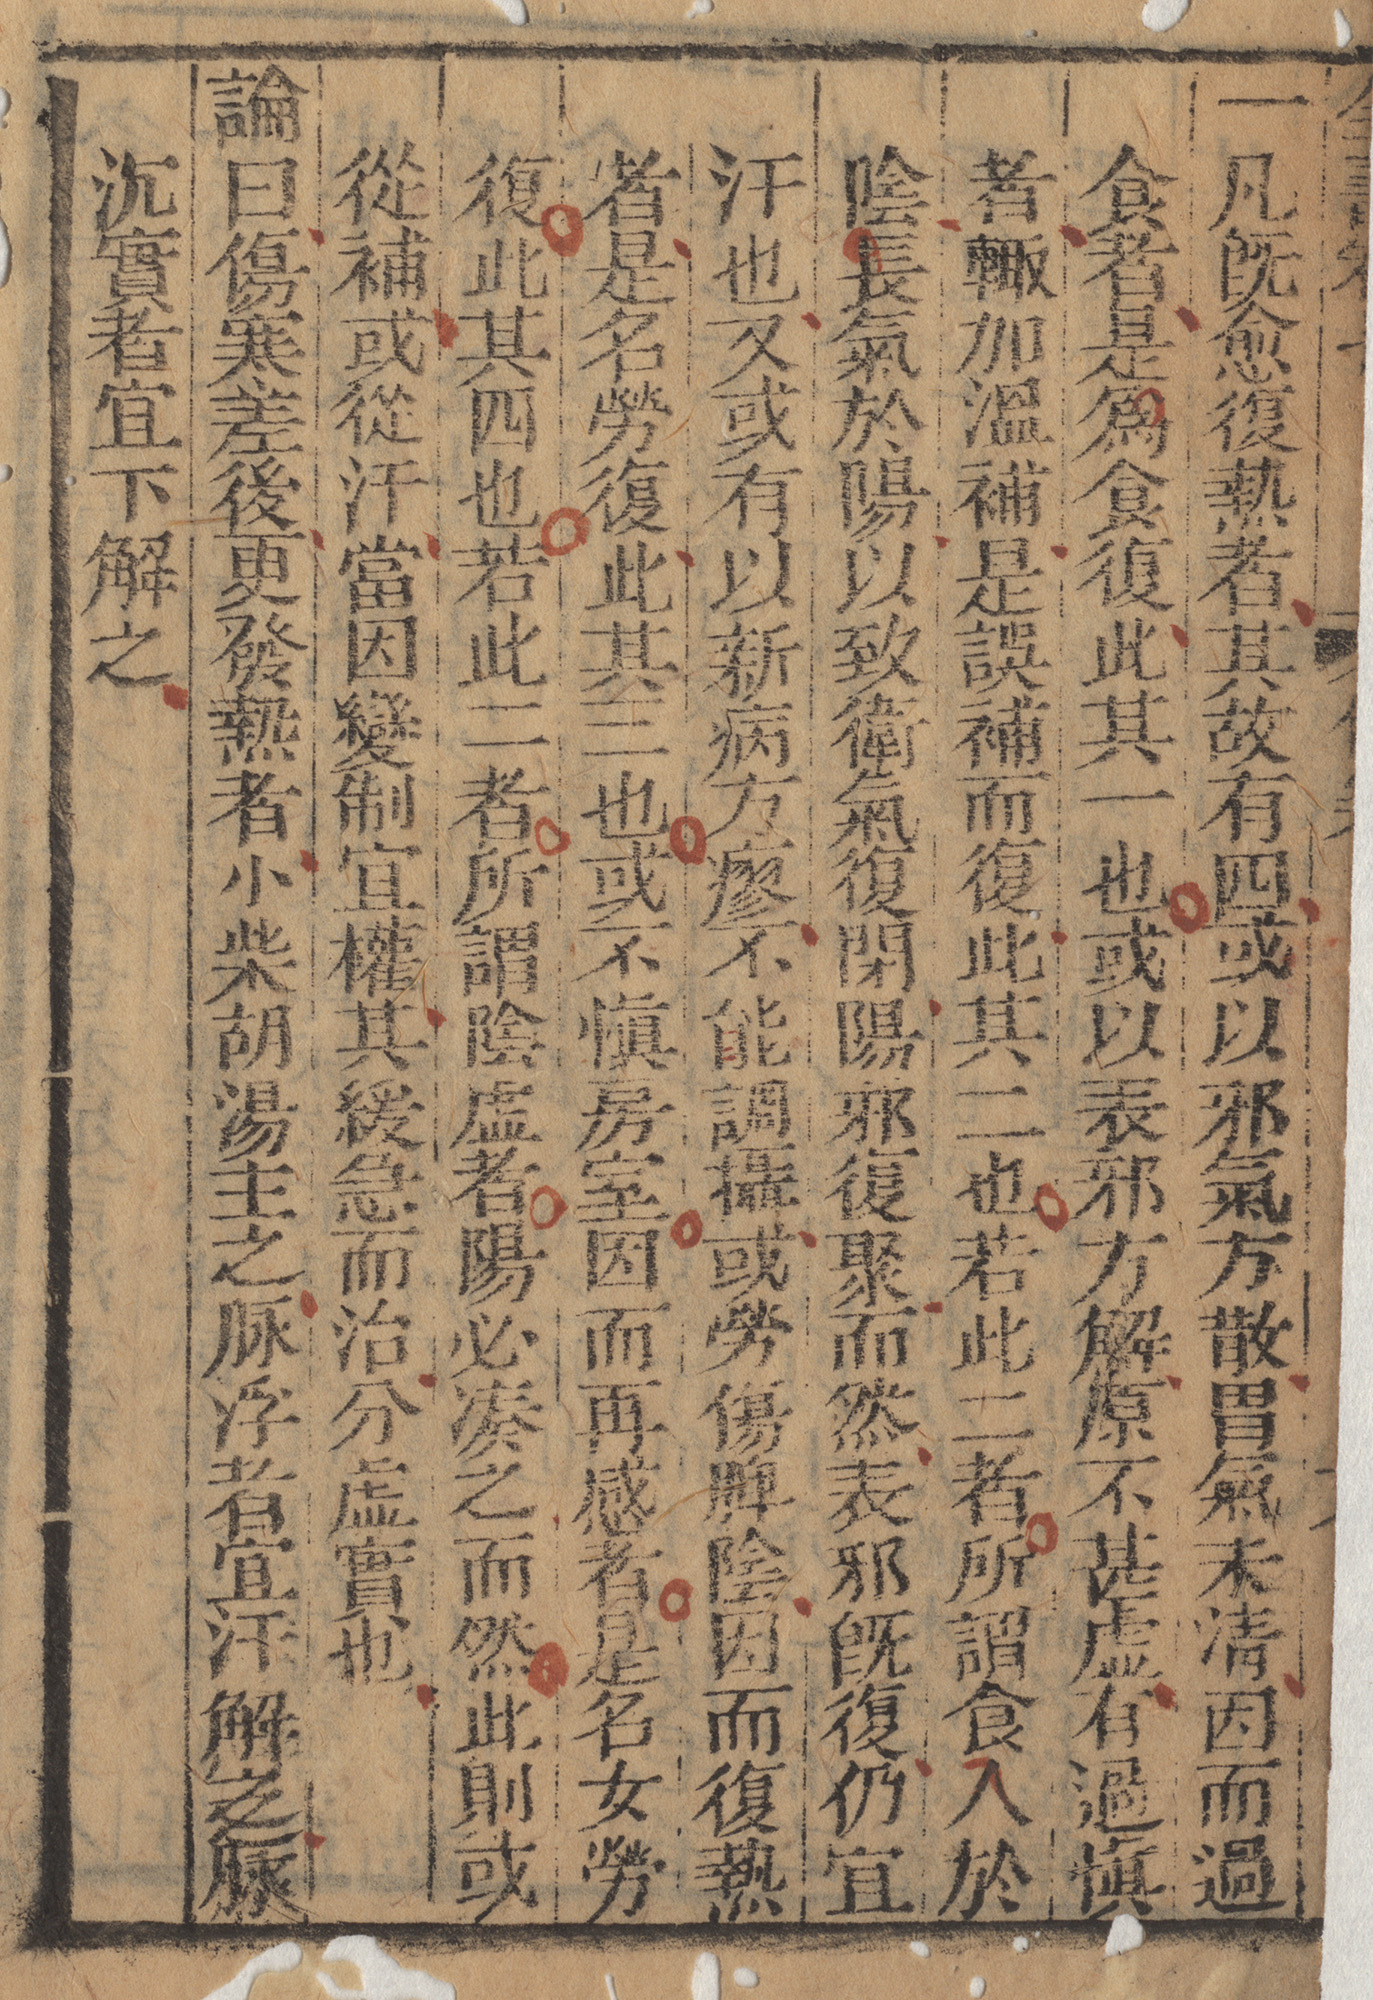 一凡既愈復熱者其故有四或以邪氣方散胃氣未清因而過
食者是爲食復此其一也或以表邪方解原不甚虛有過慎
者輙加溫補是誤補而復此其二也若此二者所謂食入於
陰長氣於陽以致衛氣復閉陽邪復聚而然表邪旣復仍宜
汗也又或有以新病方瘳不能調攝或勞傷脾陰因而復熱
者是名勞復此其三也或不慎房室因而再感者是名女勞
復此其四也若此二者所謂陰虛者陽必凑之而然此則或
從補或從汗當因變制宜權其緩急而治分虛實也
論曰傷寒差後更發熱者小柴胡湯主之脉浮者宜汗解之脉
沉實者宜下解之